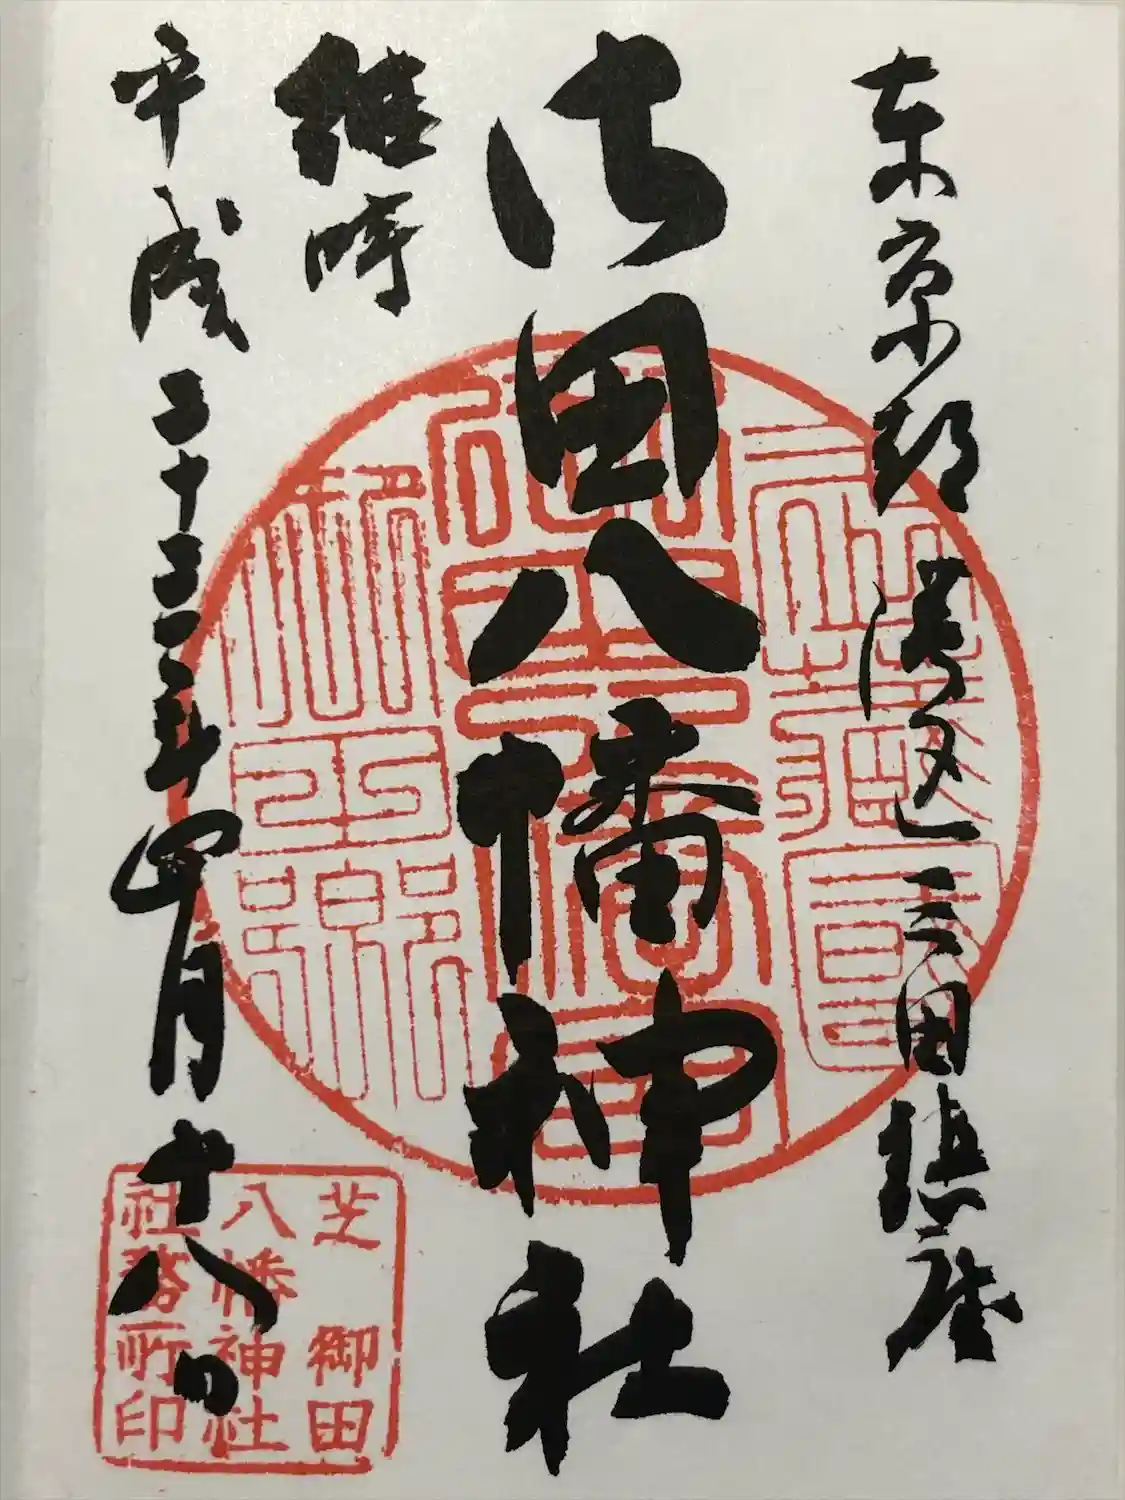 東京都港区三田鎮座
御田八幡神社
維時
平成二十三年四月十八日
芝 御田
八幡神社
社務所印